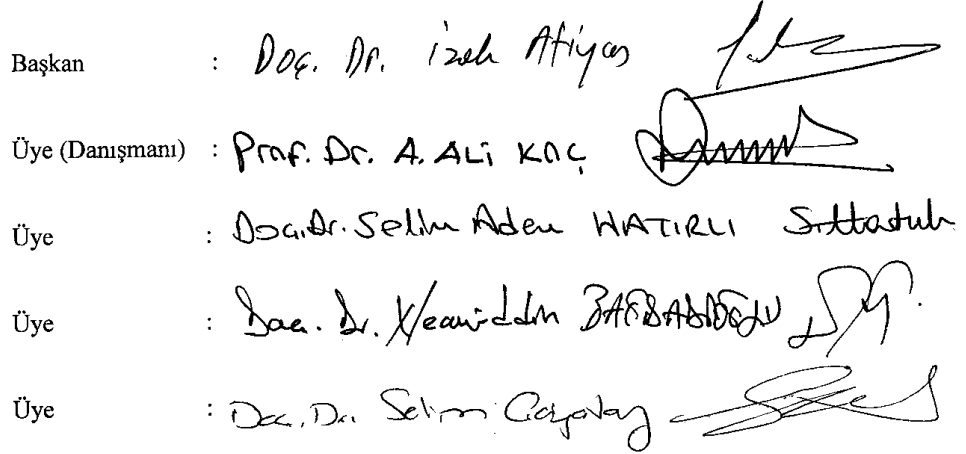 Başkan : Doç. Dr. İzak Atiyas
Üye (Danışmanı) : Prof. Dr. A. Ali KOÇ
Üye : Doç. Dr. Selim Adem HATIRLI
Üye : Doç. Dr. Necmiddin BAĞDADİOĞLU
Üye : Doç. Dr. Selim Çağatay